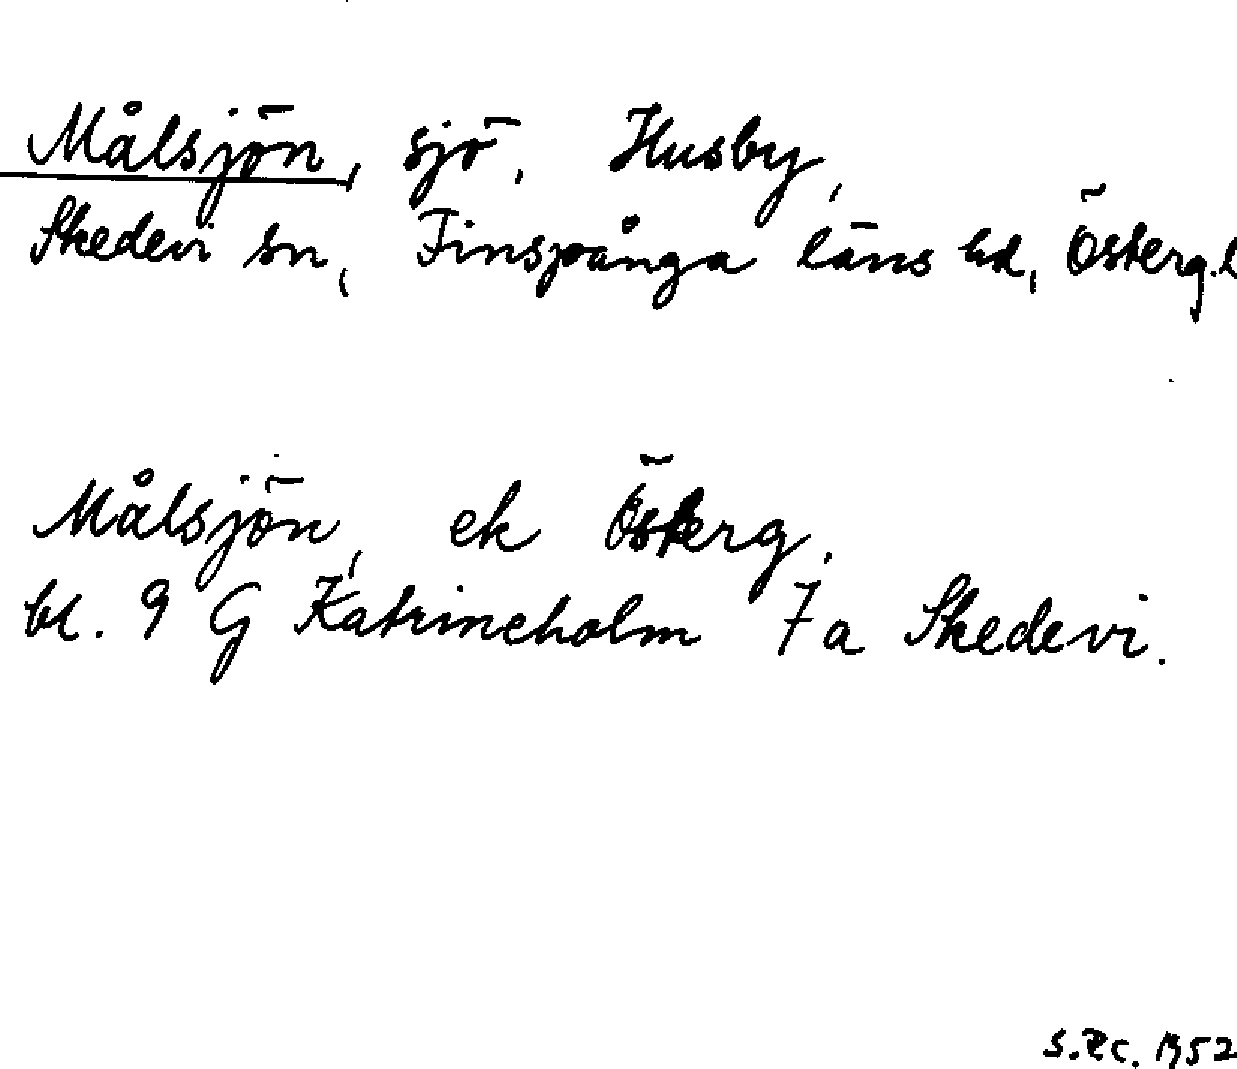 Målsjön, sjö, Husby,
Skedevi sn, Finspånga läns hd, Österg.l
Målsjön, ek Österg.
bl. 9 G Katrineholm 7 a Skedevi.
1952